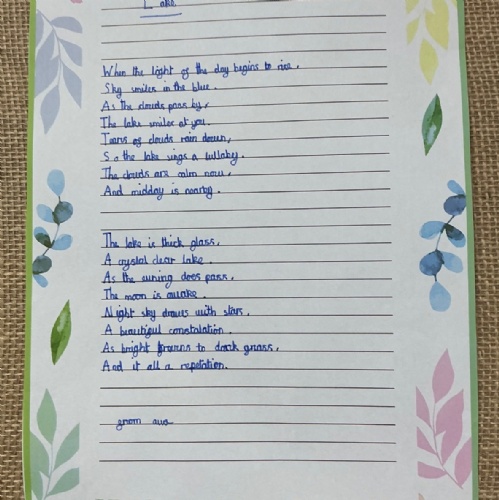 Lake
When the light of the day begins to rise,
Sky smiles in the blue.
As the clouds pass by,
The lake smiles at you.
Tears of clouds rain down,
So the lake sings a lullaby.
The clouds are calm now,
And midday is nearby.
The lake is thick glass,
A crystal clear lake.
As the evning does pass,
The moon is awake.
Night sky draws with stars,
A beautiful constalation.
As bright turns to dark grass,
And it all a repetation.
from